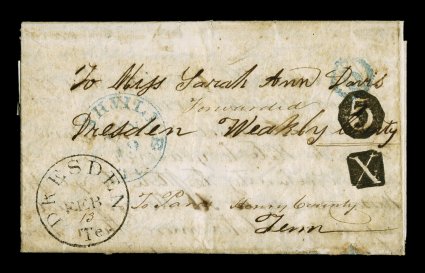 To Miss Sarah Ann Davis
Forwarded
Dresden Weakly County
To Paris Henry County
Tenn
5
X
DRESDEN
FEB
13
Te